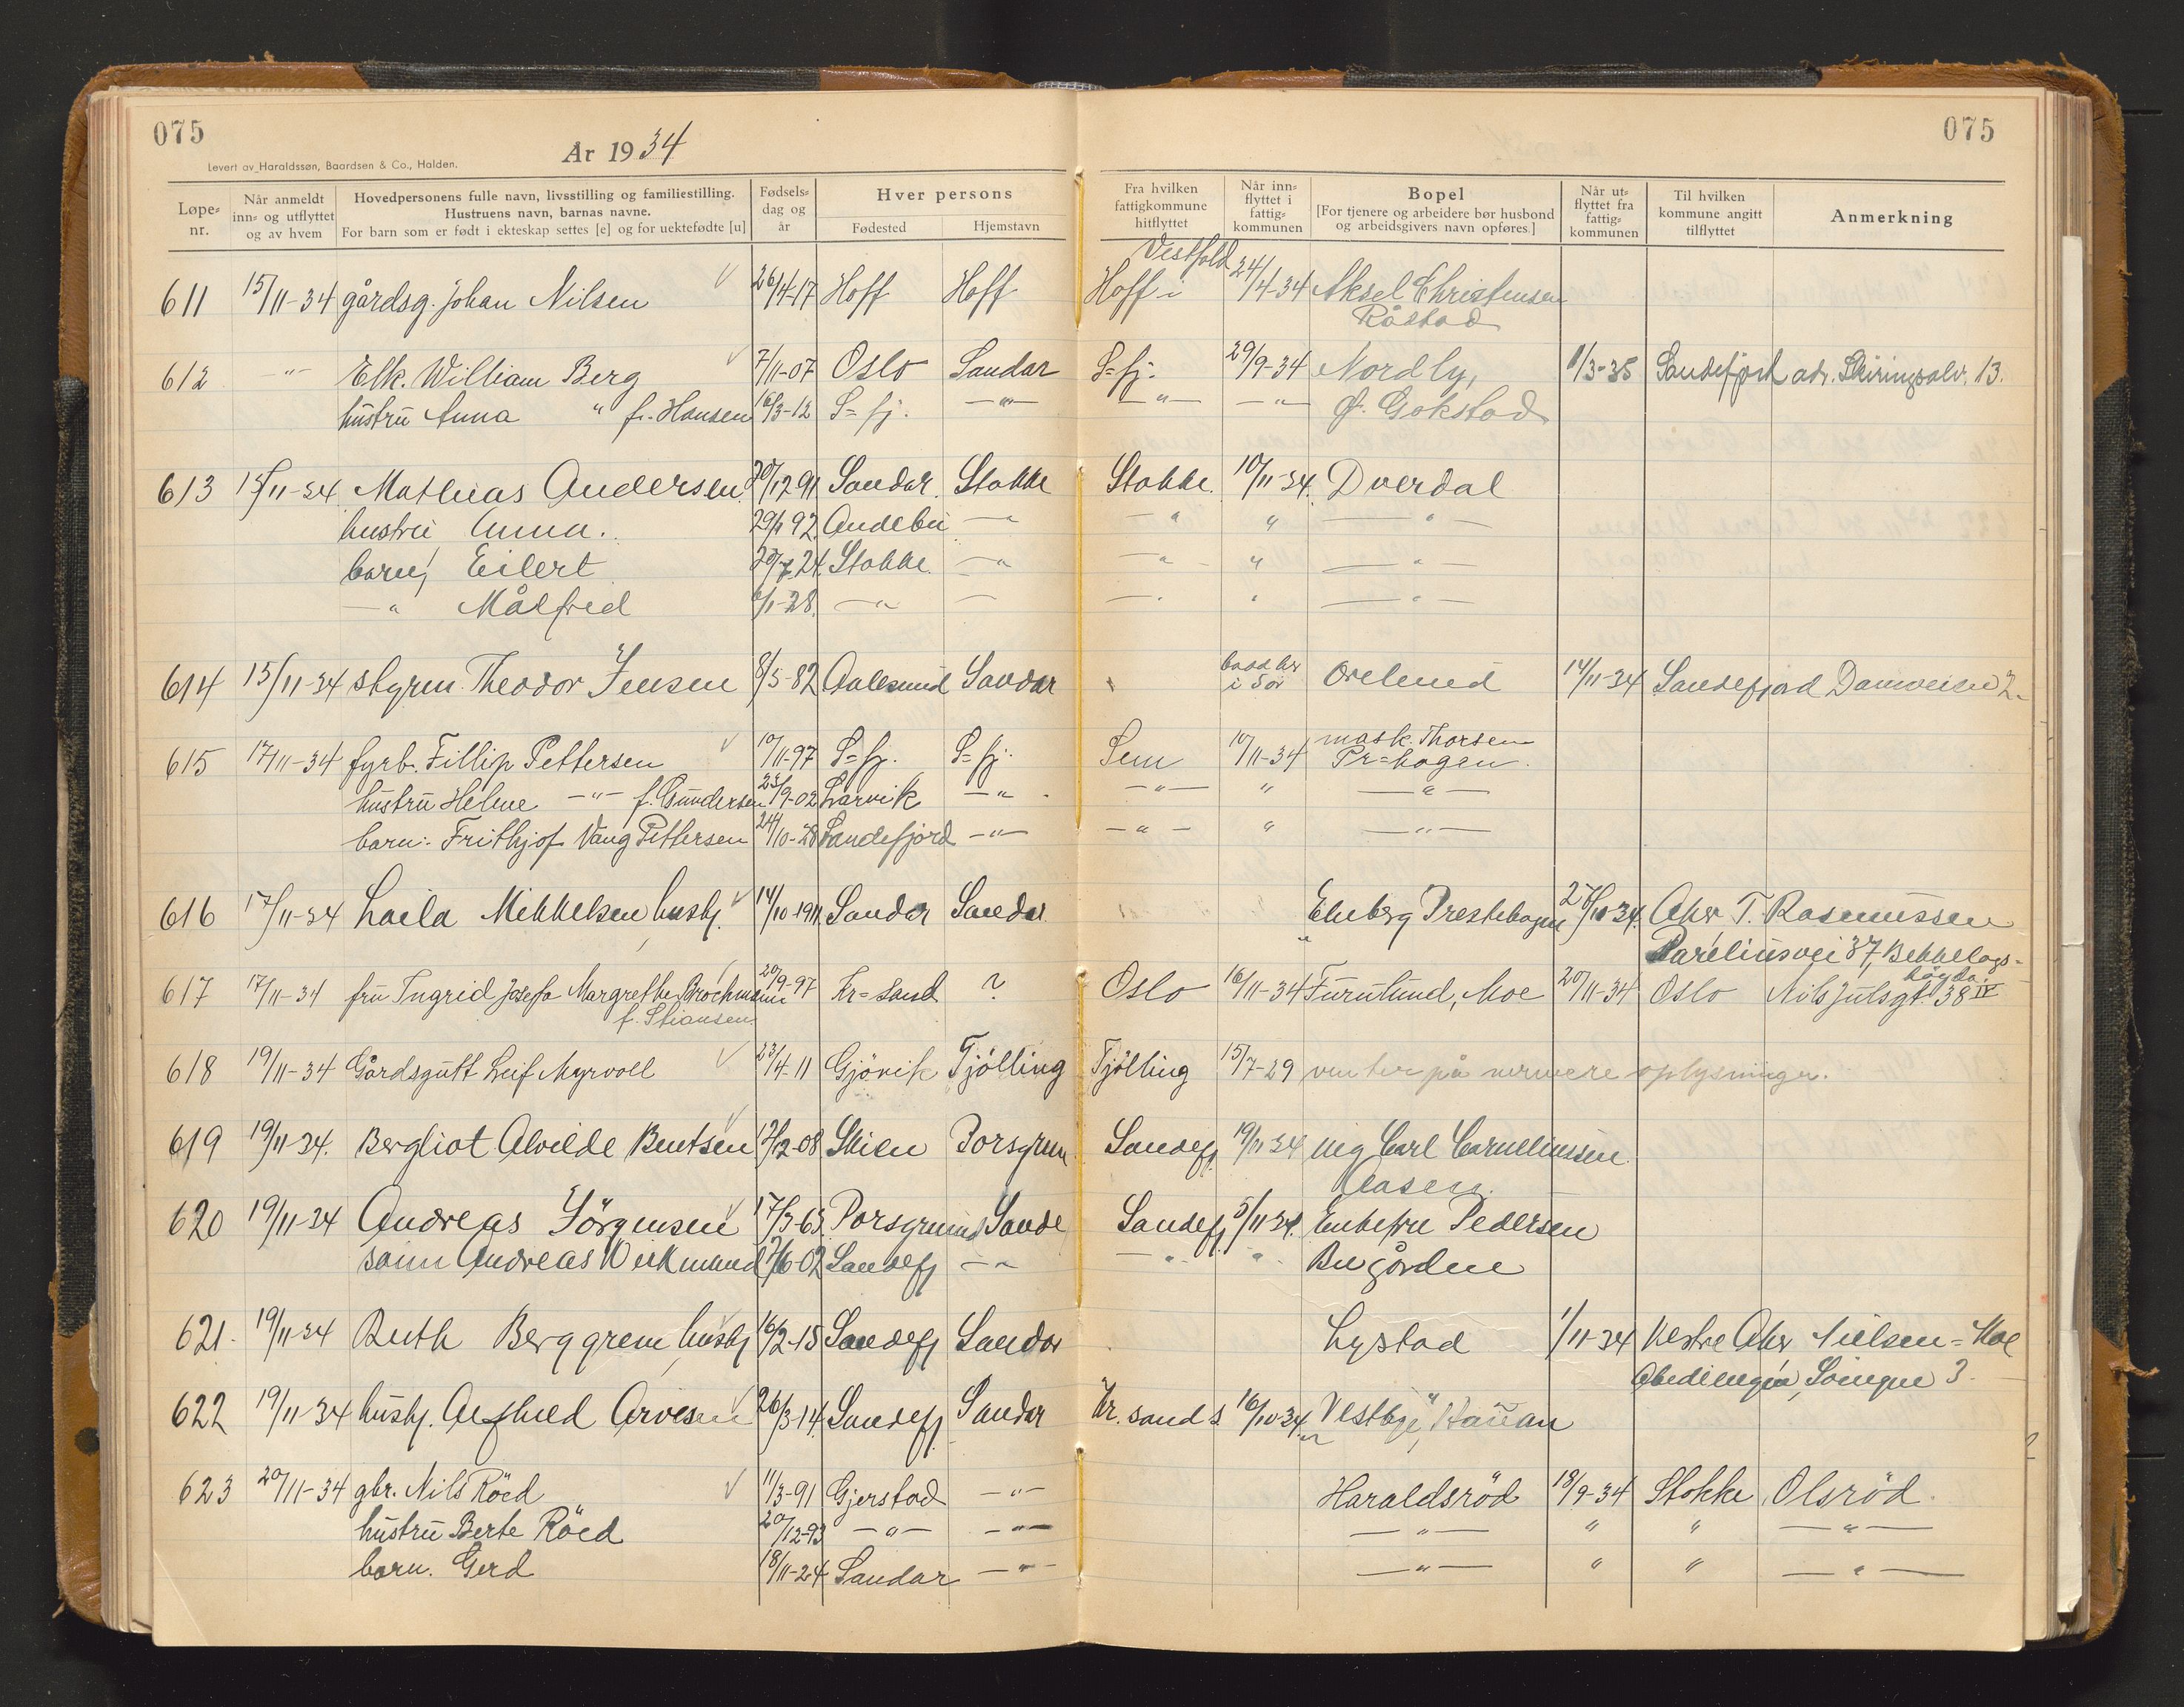 075
075
Levert av Haraldssøn, Baardsen & Co., Halden.
År 1934
Løpe-nr.
Når anmeldt inn- og utflyttet og av hvem
Hovedpersonens fulle navn, livsstilling og familiestilling. Hustruens navn, barnas navne. For barn som er født i ekteskap settes [e] og for uektefødte [u]
Fødsels-dag og år
Hver persons
Fødested
Hjemstavn
Fra hvilken fattigkommune hitflyttet
Når inn-flyttet i fattig-kommunen
Bopel [For tjenere og arbeidere bør husbond og arbeidsgivers navn opføres.]
Når ut-flyttet fra fattig-kommunen
Til hvilken kommune angitt tilflyttet
Anmerkning
611 15/11-34 gårdsg. Johan Nilsen 26/4-17 Hoff Hoff Hoff i Vestfold 24/4-34 Aksel Christensen
Råstad
612 -"- Elk. William Berg 7/11-07 Oslo Sandar S=fj. 29/9-34 Nordly, 11/3-35 Sandefjord adr. Skiringsalv. 13.
hustru Anna " f. Hansen 16/3-12 S=fj. -"- -"- -"- Ø. Gokstad
613 15/11-34 Mathias Andersen 20/12 91 Sandar. Stokke Stokke. 10/11-34. Dverdal
hustru Anna. 29/1 92 Andebu -" -"- " -"-
barn, Eilert 20/7 24 Stokke. -" -"- " -"-
-" Målfred 6/1-28. -"- - -"- " -"-
614 15/11-34 styrm. Theodor Jensen 8/5-82 Aalesund Sandar " bodd her i 5 år Orelund 14/11-34 Sandefjord Damveien 2.
615 17/11-34 fyrb. Fillip Pettersen 10/11-97 S=fj. S=fj. Sem 10/11-34 mask. Thorsen
Pr=hagen.
hustru Helene -"- f. Gundersen 23/9-02 Larvik -"- -"- " -"-
barn: Frithjof Vang Pettersen 24/10-28 Sandefjord -"- -"- " -"-
616 17/11-34 Laila Mikkelsen hushj. 14/10-1911 Sandar Sandar Eneberg Prestehagen 27/10-34. Aker T. Rasmussen
Pareliusvei 37, Bekkelags-
høyda
617 17/11-34 fru Ingrid Josefa Margrethe Brochmann 20/9-97 Kr=sand ? Oslo 16/11-34 Furulund, Moe 20/11-34 Oslo Nils Julsgt. 38 IV
f. Stiansen
618 19/11-34 Gårdsgutt Leif Myrvoll 23/4-11 Gjövik Tjölling Tjölling 15/7-29 venter på nermere oplysninger.
619 19/11-34. Bergliot Alvilde Bentsen 12/12-08 Skien Porsgrun Sandefj. 19/11 34 ung Carl Cornelliussen
Aasen.
620 19/11-34 Andreas Jörgensen 17/3-63 Porsgrund Sande Sandefj 5/11 34. Enkefru Pedersen
sønn Andreas Wirkmund 7/6-02 Sandefj -"- -"- " Bugården
621. 19/11-34 Ruth Berggren hushj 16/2-15 Sandefj Sandar Lystad 1/11-34 Vestre Aker Nielsen=Moe
Søingen 3.
622 19/11-34 hushj. Arvesen 26/3-14. Sandefj Sandar Kr. sand S. 16/10-34. "Vestby", Hauan
623 20/11-34 gbr. Nils Röed 11/3-91 Gjerstad -"- Haraldsröd 18/9-34 Stokke Olsröd.
hustru Berte Röed 20/12-93 -"- -"- -"- " " -"-
barn. Gerd 18/11-24 Sandar -"- -"- " " -"-